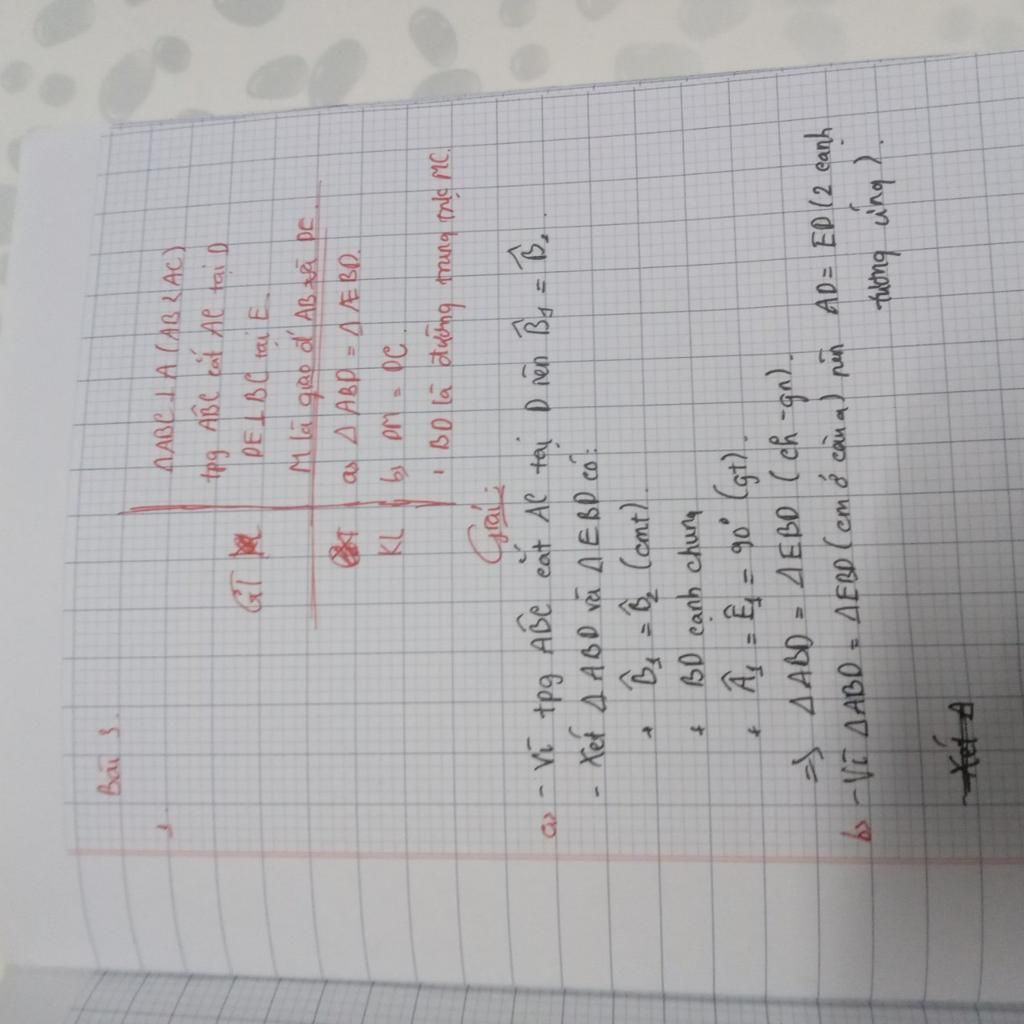 Bài 3.
ΔABC ⊥ A (AB < AC)
GT
tpg AB̂C cắt AC tại D
DE ⊥ BC tại E
M là giao đ' AB và DC.
a) Δ ABD = Δ EBD.
KL
b) DM = DC.
, BD là đường trung trực MC.
Giải:
a) - Vì tpg AB̂C cắt AC tại D nên B̂1 = B̂2.
- Xét Δ ABD và Δ EBD có:
+ B̂1 = B̂2 (cmt).
+ BD cạnh chung
+ Â1 = Ê1 = 90° (gt).
=> Δ ABD = Δ EBD (ch - gn).
b) - Vì ΔABD = ΔEBD (cm ở câu a) nên AD = ED (2 cạnh
tương ứng).
- Xét Δ